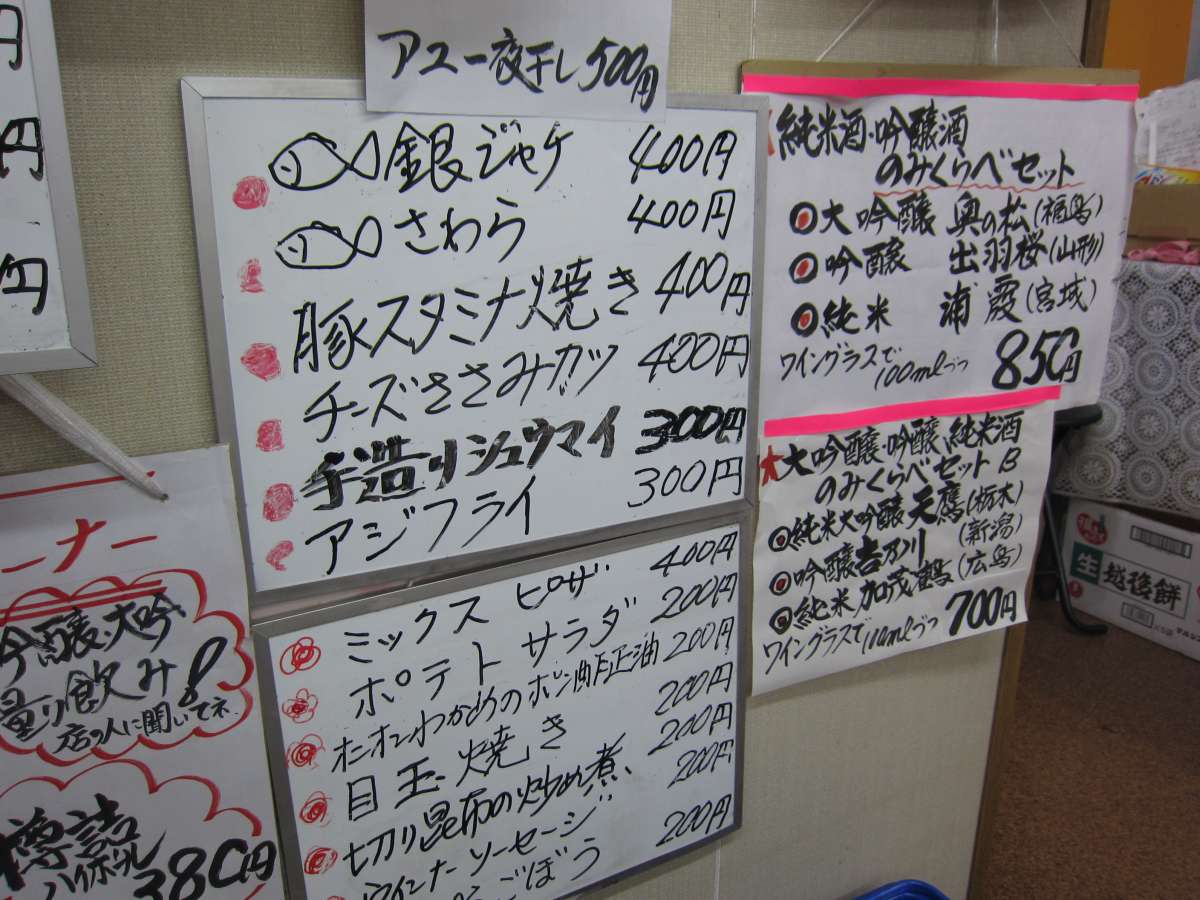 円
円
円
アユ一夜干し 500円
銀ジャケ 400円
さわら 400円
豚スタミナ焼き 400円
チーズささみカツ 400円
手造りシュウマイ 300円
アジフライ 300円
ミックスピザ 400円
ポテトサラダ 200円
オニオンわかめのポン酢正油 200円
目玉焼き 200円
切り昆布の炒め煮 200円
ウインナーソーセージ 200円
ごぼう 200円
純米酒・吟醸酒
のみくらべセット
大吟醸 奥の松(福島)
吟醸 出羽桜(山形)
純米 浦霞(宮城)
ワイングラスで
100mlづつ 850円
大吟醸・吟醸・純米酒
のみくらべセットB
純米大吟醸 天鷹(栃木)
吟醸 吉乃川(新潟)
純米 加茂鶴(広島)
ワイングラスで110mlづつ 700円
ーナー
吟醸・大吟
量り飲み
店の人に聞いてネ
樽詰
ハイボール 380円
生 越後餅